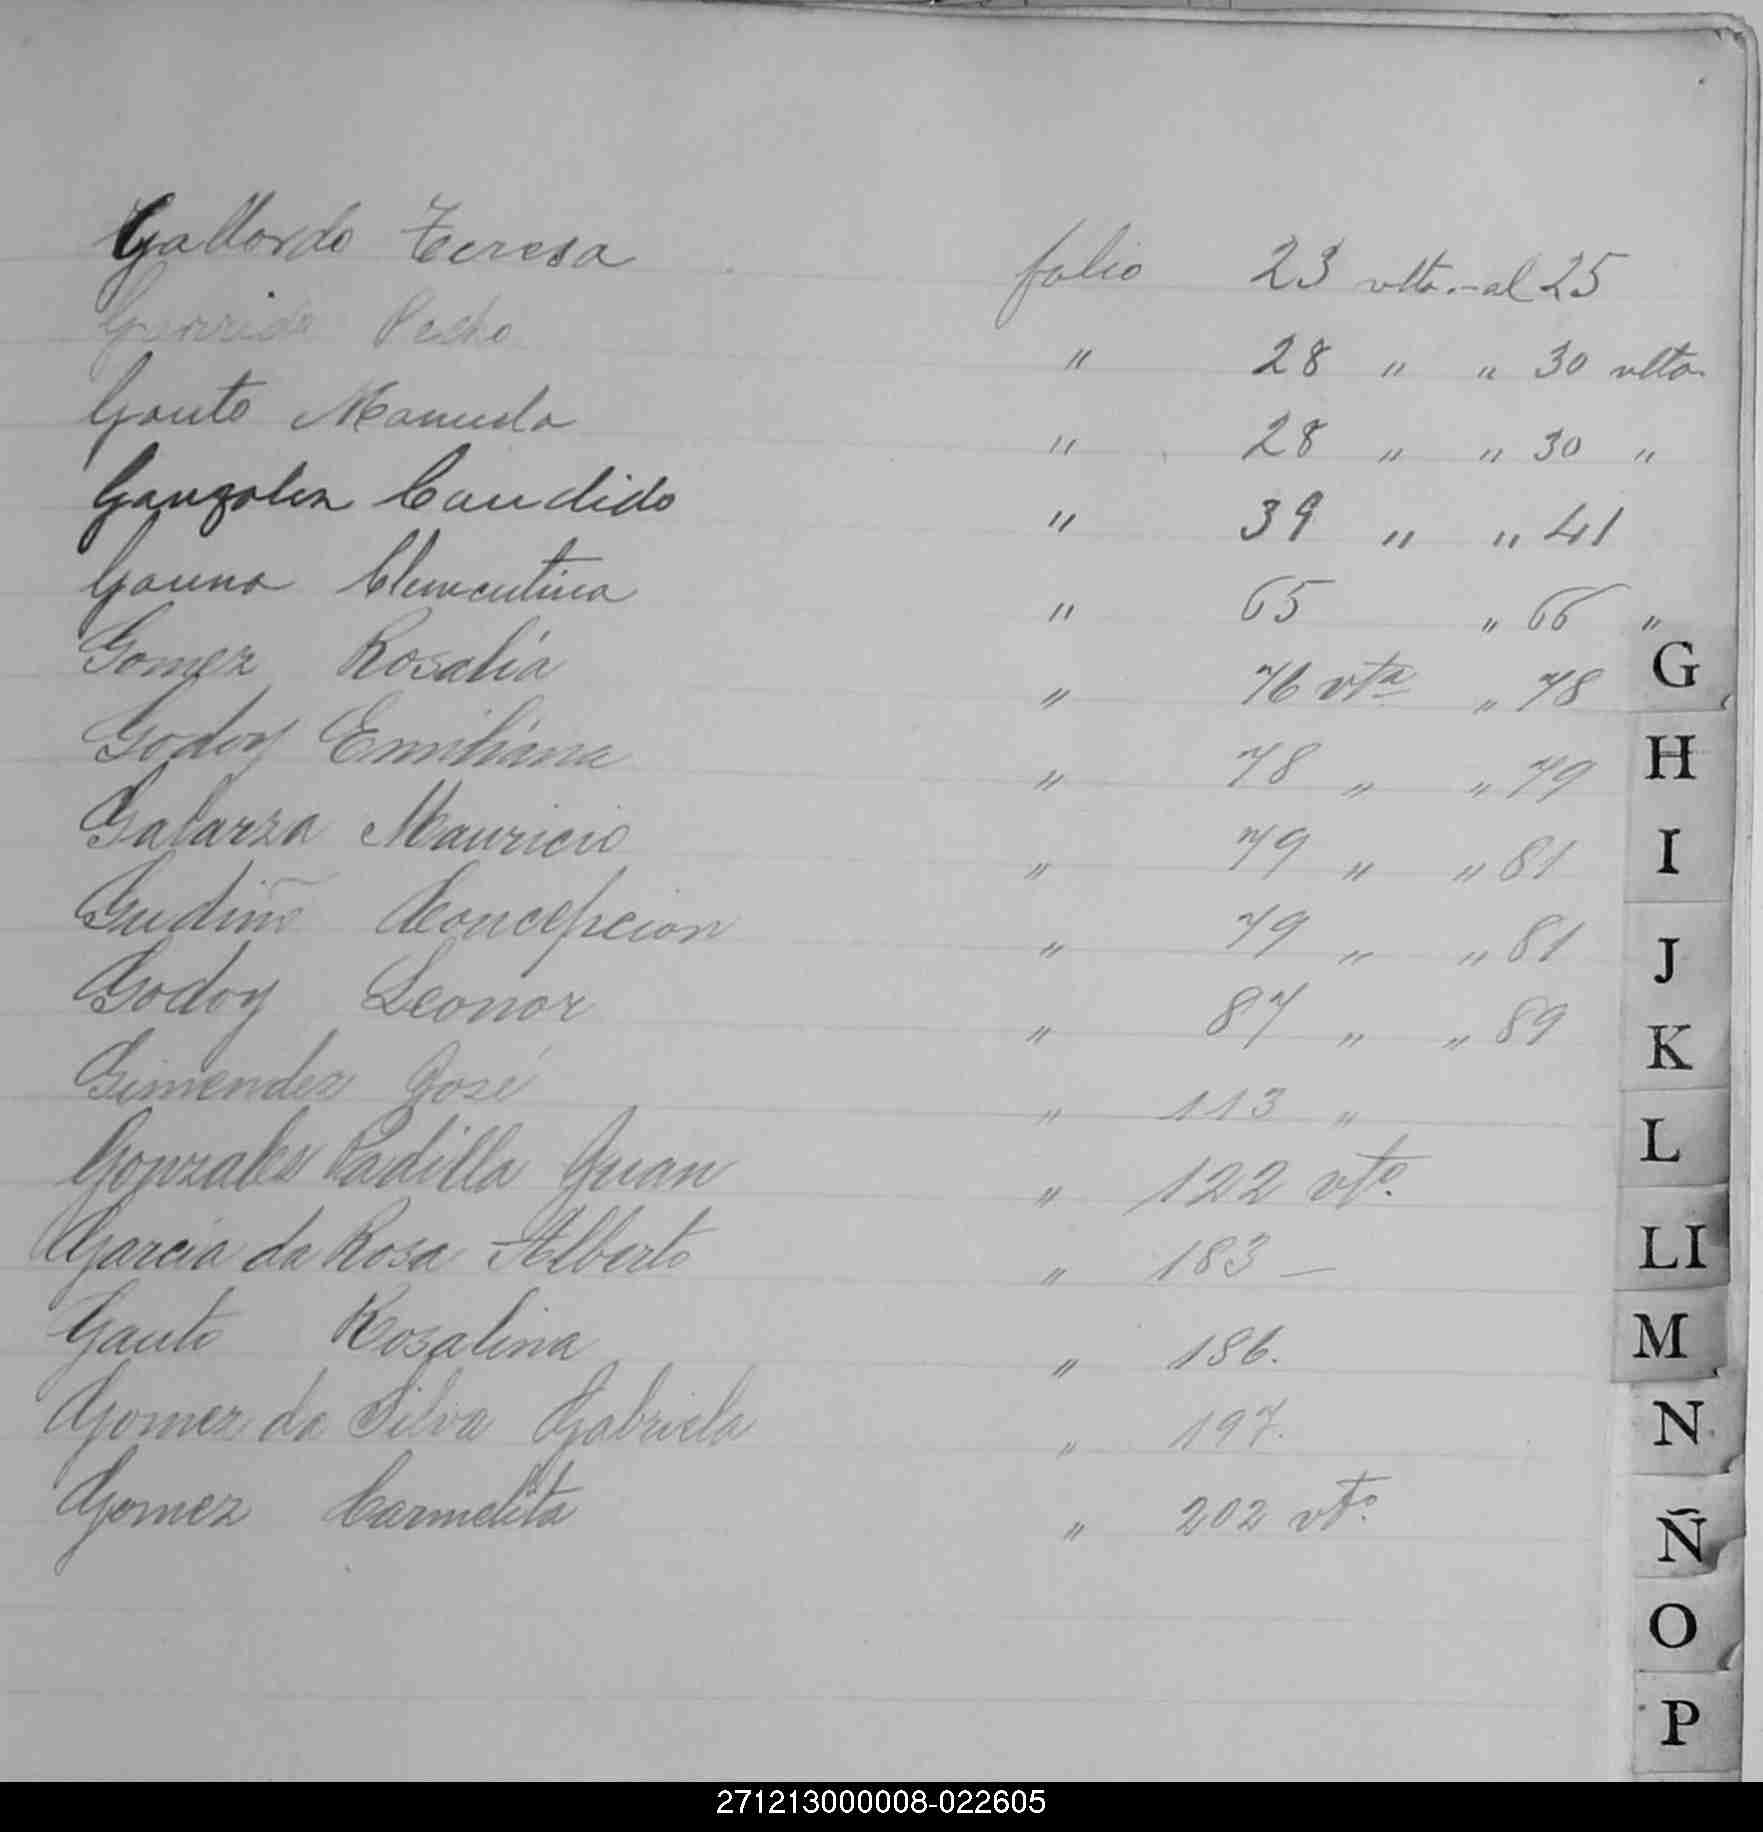 Gallardo Teresa folio 23 vlta.- al 25
Garrido Pedro " 28 " " 30 vlta.
Gauto Manuela " 28 " " 30 "
Gaugalez Candido " 39 " " 41
Gauna Clementina " 65 " 66 "
Gomez Rosalia " 76 vta " 78
Godoy Emiliana " 78 " " 79
Galarza Mauricio " 79 " " 81
Gudiño Concepcion " 79 " " 81
Godoy Leonor " 87 " " 89
Gimendez José " 113 "
Gonzales Padilla Juan " 122 vto.
Garcia da Rosa Alberto " 183 —
Gauto Rosalina " 186.
Gomez da Silva Gabriela " 197.
Gomez Carmelita " 202 vto.
G
H
I
J
K
L
Ll
M
N
Ñ
O
P
271213000008-022605